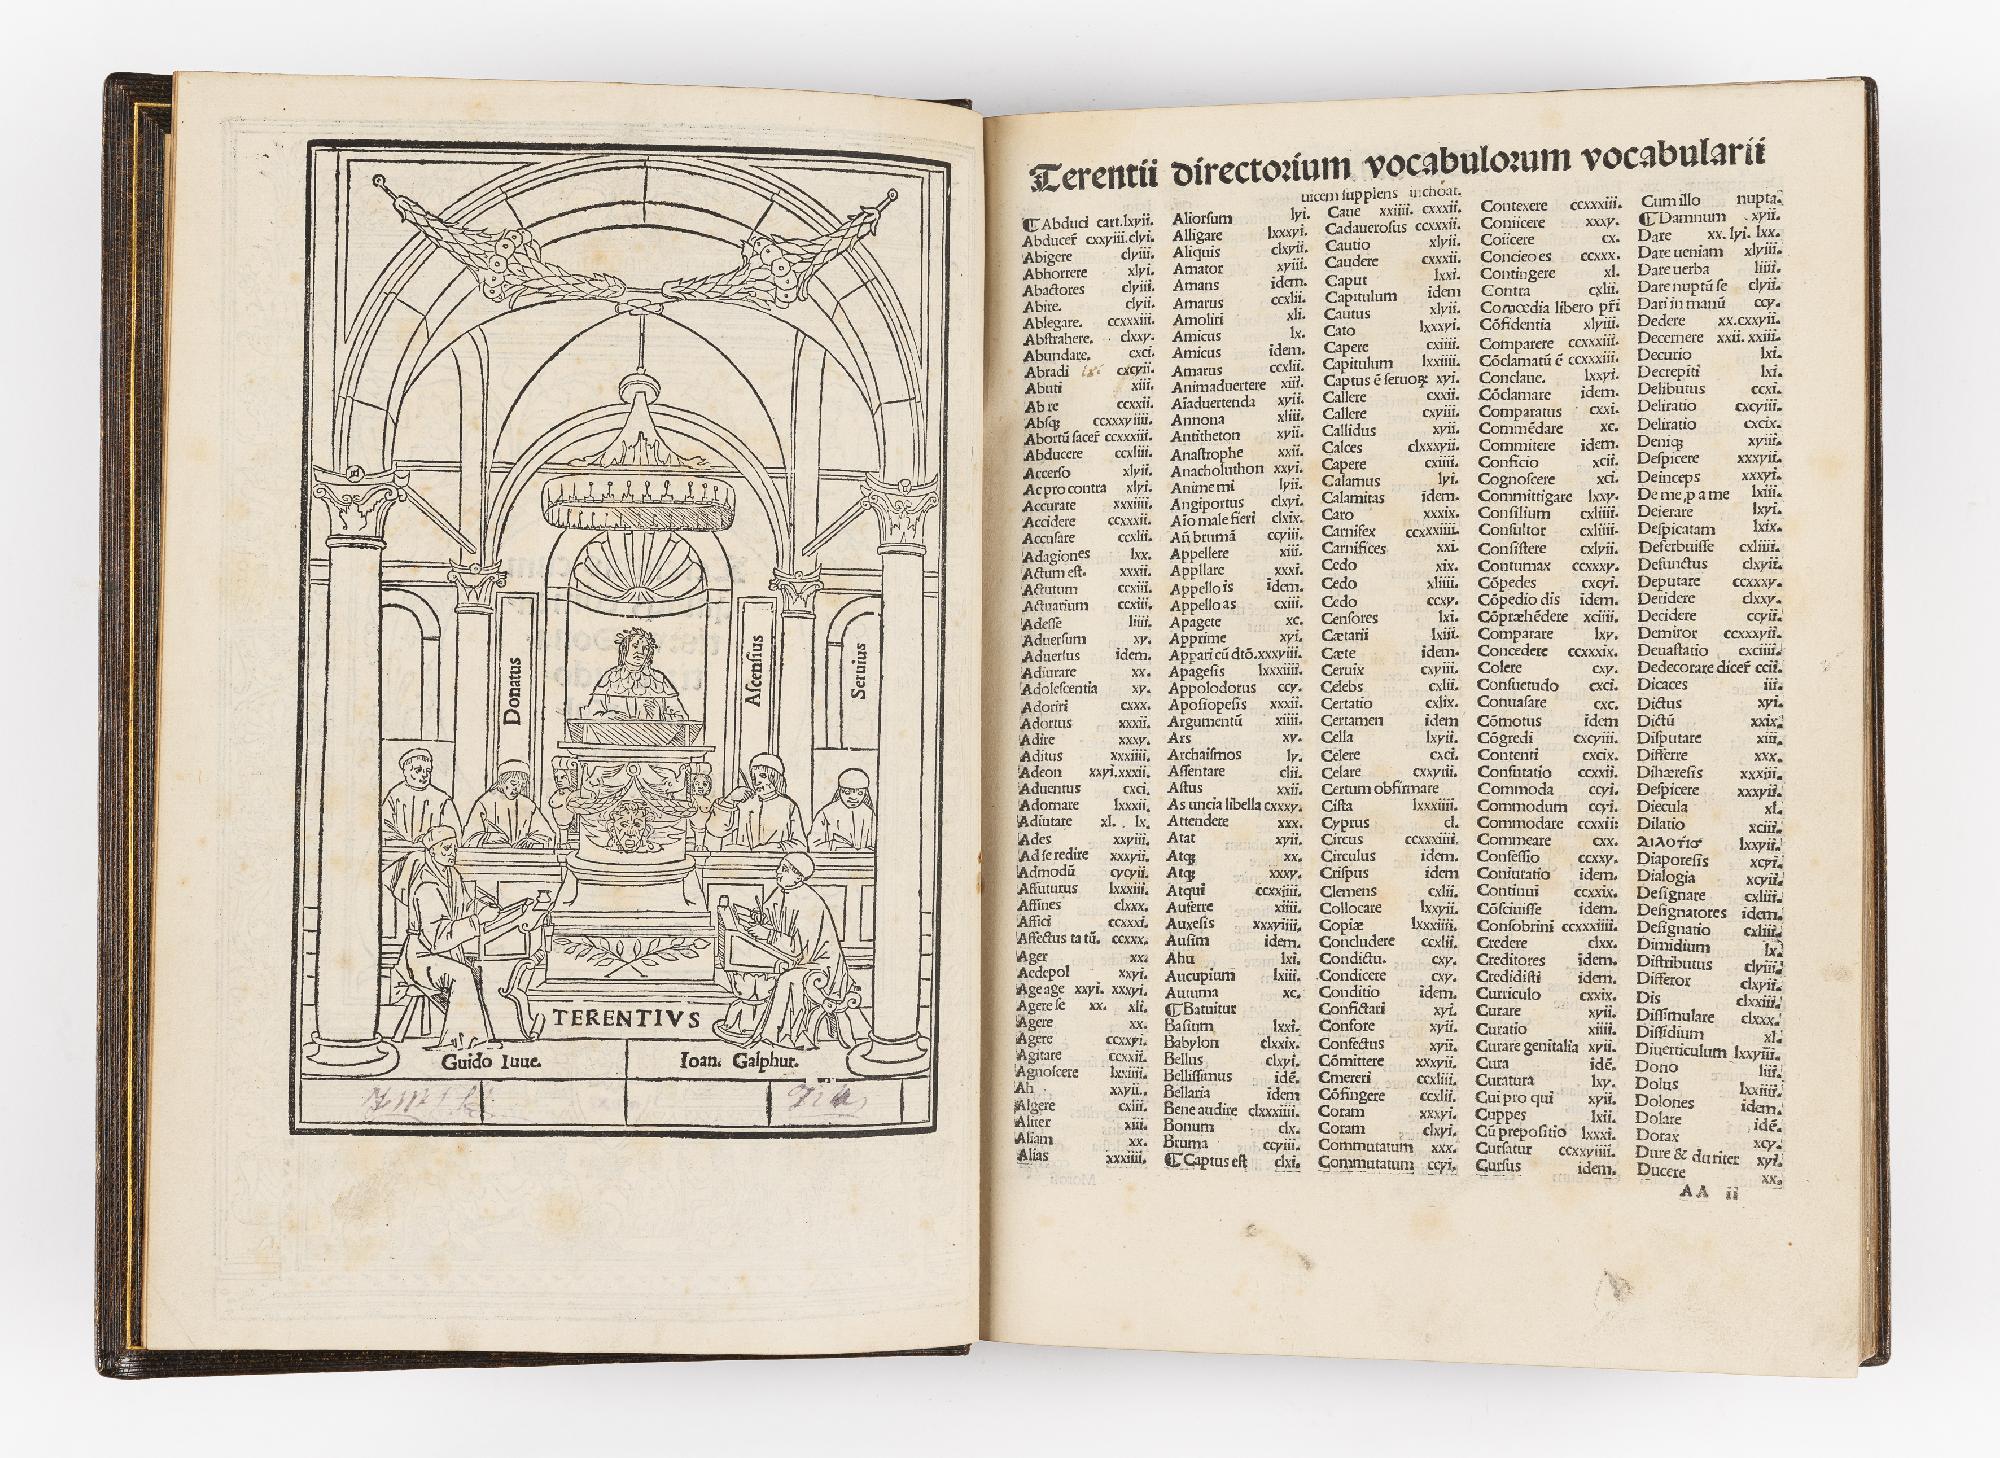 Donatus
Ascensius
Seruius
TERENTIVS
Guido Iuue.
Ioan. Galphur.
Terentii directorium vocabulorum vocabularii
uicem supplens inchoat.
¶ Abduci cart.lxvii.
Abducer̃ cxxviii.clvi.
Abigere clviii.
Abhorrere xlvi.
Abactores clviii.
Abire. clvii.
Ablegare. ccxxxiii.
Abstrahere. clxxv.
Abundare. cxci.
Abradi cxcvii.
Abuti xiii.
Ab re ccxxii.
Absq; ccxxxviiii.
Abortũ facer̃ ccxxxiii.
Abducere ccxliii.
Accerso xlvii.
Ac pro contra xlvi.
Accurate xxxiiii.
Accidere ccxxxii.
Accusare ccxlii.
Adagiones lxx.
Actum est. xxxii.
Actutum ccxiii.
Actuarium ccxiii.
Adesse liiii.
Aduersum xv.
Aduersus idem.
Adiurare xx.
Adolescentia xv.
Adoriri cxxx.
Adortus xxxii.
Adire xxxv.
Aditus xxxiiii.
Adeon xxvi.xxxii.
Aduentus cxci.
Adornare lxxxii.
Adiutare xl. lx.
Ades xxviii.
Ad se redire xxxvii.
Admodũ cvcvii.
Affuturus lxxxiii.
Affines clxxx.
Affici ccxxxi.
Affectus ta tũ. ccxxx.
Ager xx.
Aedepol xxvi.
Age age xxvi. xxxvi.
Agere se xx. xli.
Agere xx.
Agere ccxxvi.
Agitare ccxxii.
Agnoscere lxxiiii.
Ah xxvii.
Algere cxiii.
Aliter xiii.
Aliam xx.
Alias xxxiiii.
Aliorsum lvi.
Alligare lxxxvi.
Aliquis clxvii.
Amator xviii.
Amans idem.
Amarus ccxlii.
Amoliri xli.
Amicus lx.
Amicus idem.
Amarus ccxlii.
Animaduertere xiii.
Aiaduertenda xvii.
Annona xliii.
Antitheton xvii.
Anastrophe xxii.
Anacholuthon xxvi.
Anime mi lvii.
Angiportus clxvi.
Aio male fieri clxix.
Añ brumã ccviii.
Appellere xiii.
Appllare xxxi.
Appello is idem.
Appello as cxiii.
Apagete xc.
Apprime xvi.
Appari cũ dtõ.xxxviii.
Apagesis lxxxiiii.
Appolodorus ccv.
Aposiopesis xxxii.
Argumentũ xiiii.
Ars xv.
Archaismos lv.
Assentare clii.
Astus xxii.
As uncia libella cxxxv.
Attendere xxx.
Atat xvii.
Atq; xx.
Atq; xxxv.
Atqui ccxxiiii.
Auferre xiiii.
Auxesis xxxviiii.
Ausim idem.
Ahu lxi.
Aucupium lxiii.
Autuma xc.
¶ Batuitur
Basium lxxi.
Babylon clxxix.
Bellus clxvi.
Bellissimus idẽ.
Bellaria idem
Bene audire clxxxiiii.
Bonum clx.
Bruma ccviii.
¶ Captus est clxi.
Caue xxiiii. cxxxii.
Cadauerosus ccxxxii.
Cautio xlvii.
Caudere cxxxii.
Caput lxxi.
Capitulum idem
Cautus xlvii.
Cato lxxxvi.
Capere cxiiii.
Capitulum lxxiiii.
Captus ẽ seruoꝝ xvi.
Callere cxxii.
Callere cxviii.
Callidus xvii.
Calces clxxxvii.
Capere cxiiii.
Calamus lvi.
Calamitas idem.
Caro xxxix.
Carnifex ccxxxiiii.
Carnifices xxi.
Cedo xix.
Cedo xliiii.
Cedo ccxv.
Censores lxi.
Cætarii lxiii.
Cæte idem.
Ceruix cxviii.
Celebs cxlii.
Certatio cxlix.
Certamen idem
Cella lxvii.
Celere cxci.
Celare cxxviii.
Certum obfirmare
Cista lxxxiiii.
Cyprus cl.
Circus ccxxxiiii.
Circulus idem.
Crispus idem
Clemens cxlii.
Collocare lxxvii.
Copiæ lxxxiiii.
Concludere ccxlii.
Condictu. cxv.
Condicere cxv.
Conditio idem.
Conflictari xvi.
Confore xvii.
Confectus xvii.
Cõmittere xxxvii.
Cmereri ccxliii.
Cõfingere ccxlii.
Coram xxxvi.
Coram clxvi.
Commutatum xxx.
Commutatum ccvi.
Contexere ccxxxiii.
Coniicere xxxv.
Coiicere cx.
Concieo es ccxxx.
Contingere xl.
Contra cxlii.
Comoedia libero pr̃i
Cõfidentia xlviii.
Comparere ccxxxiii.
Cõclamatũ ẽ ccxxxiii.
Conclaue. lxxvi.
Cõclamare idem.
Comparatus cxxi.
Commẽdare xc.
Commitere idem.
Conficio xcii.
Cognoscere xci.
Committigare lxxv.
Consilium cxliiii.
Consultor cxliiii.
Consistere cxlvii.
Contumax ccxxxv.
Cõpedes cxcvi.
Cõpedio dis idem.
Cõpræhẽdere xciiii.
Comparare lxv.
Concedere ccxxxix.
Colere cxv.
Consuetudo cxci.
Conuasare cxc.
Cõmotus idem
Cõgredi cxcviii.
Contenti cxcix.
Confutatio ccxxii.
Commoda ccvi.
Commodum ccvi.
Commodare ccxxii:
Commeare cxx.
Confessio ccxxv.
Coniutatio idem.
Continui ccxxix.
Cõsciuisse idem.
Consobrini ccxxxiiii.
Credere clxx.
Creditores idem.
Credidisti idem.
Curriculo cxxix.
Curare xvii.
Curatio xiiii.
Curare genitalia xvii.
Cura idẽ.
Curatura lxv.
Cui pro qui xvii.
Cuppes lxii.
Cũ prepositio lxxxi.
Cursatur ccxxviiii.
Cursus idem.
Cum illo nupta.
¶ Damnum xvii.
Dare xx. lvi. lxx.
Dare ueniam xlviii.
Dare uerba liiii.
Dare nuptũ se clvii.
Dari in manũ ccv.
Dedere xx.cxxvii.
Decernere xxii. xxiii.
Decurio lxi.
Decrepiti lxi.
Delibutus ccxi.
Deliratio cxcviii.
Deliratio cxcix.
Deniq; xviii.
Despicere xxxvii.
Deinceps xxxvi.
De me, p a me lxiii.
Deierare lxvi.
Despicatam lxix.
Deferbuisse cxliiii.
Defunctus clxvii.
Deputare ccxxxv.
Deridere clxxv.
Decidere ccvii.
Demiror ccxxxvii.
Deuastatio cxciiii.
Dedecorare dicer̃ ccii.
Dicaces iii.
Dictus xvi.
Dictũ xxix.
Disputare xiii.
Differre xxx.
Dihæresis xxxiii.
Despicere xxxvii.
Diecula xl.
Dilatio xciii.
lxxvii.
Diaporesis xcvi.
Dialogia xcvii.
Designare cxliii.
Designatores idem.
Designatio cxliii.
Dimidium lx.
Distributus clviii.
Differor clxvii.
Dis clxxiii.
Dissimulare clxxx.
Dissidium xl.
Diuerticulum lxxviii.
Dono liii.
Dolus lxxiiii.
Dolones idem.
Dolare idẽ.
Dorax xcv.
Dure & duriter xvi.
Ducere xx.
AA ii